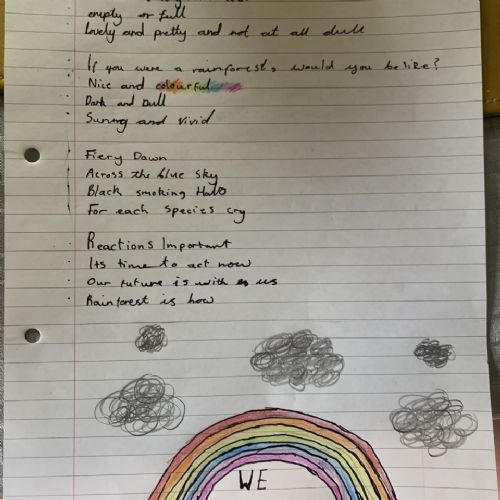 empty or full
Lovely and pretty and not at all dull
If you were a rainforest, would you be like?
Nice and colourful
Dark and Dull
Sunny and Vivid
Fiery Dawn
Across the blue sky
Black smoking Halo
For each species cry
Reactions Important
Its time to act now
Our future is with us
Rainforest is how
WE